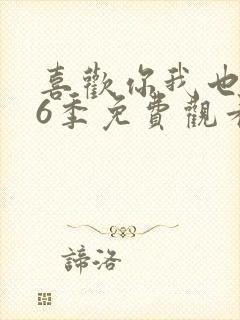 喜歡你我也
6季免費觀看
諦洛